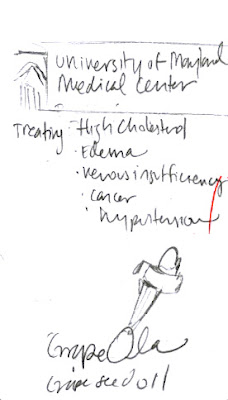 University of Maryland
Medical Center
Treating · High Cholesterol
· Edema
· venous insufficiency
· cancer
· hypertension
GrapeOla
Grape seed oil